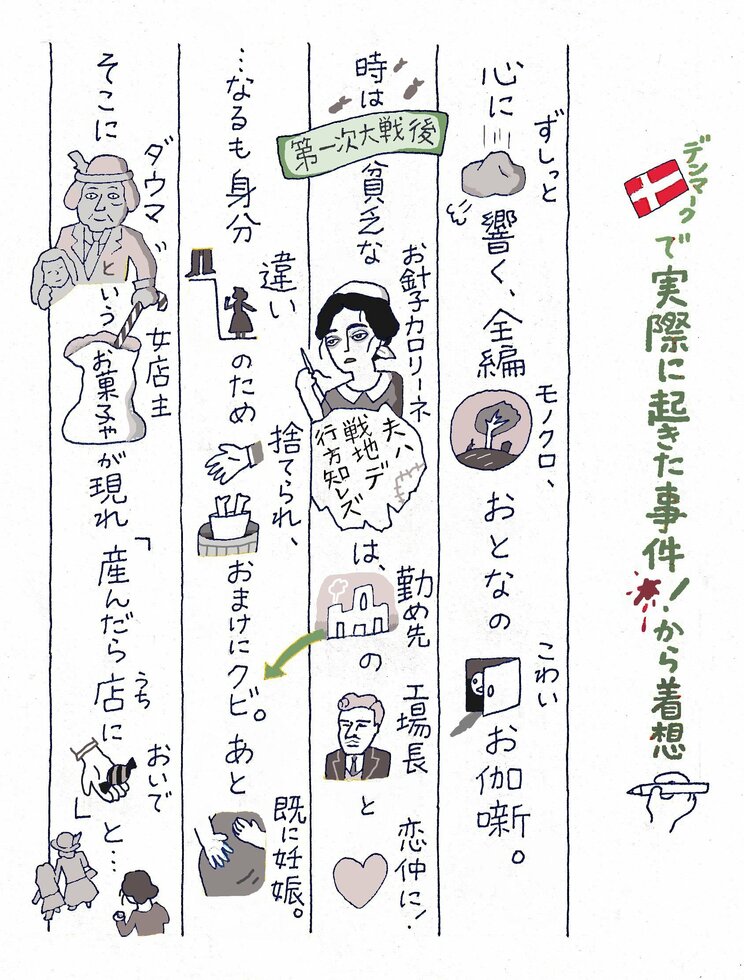 デンマークで実際に起きた事件!から着想
心にずしっと響く、全編モノクロ、おとなのこわいお伽噺。
時は第一次大戦後貧乏なお針子カロリーネ
夫ハ
戦地デ
行方知レズ
は、勤め先の工場長と恋仲に!
…なるも身分違いのため捨てられ、おまけにクビ。あと既に妊娠。
そこにダウマという女店主お菓子やが現れ「産んだら店にうちおいで」と…